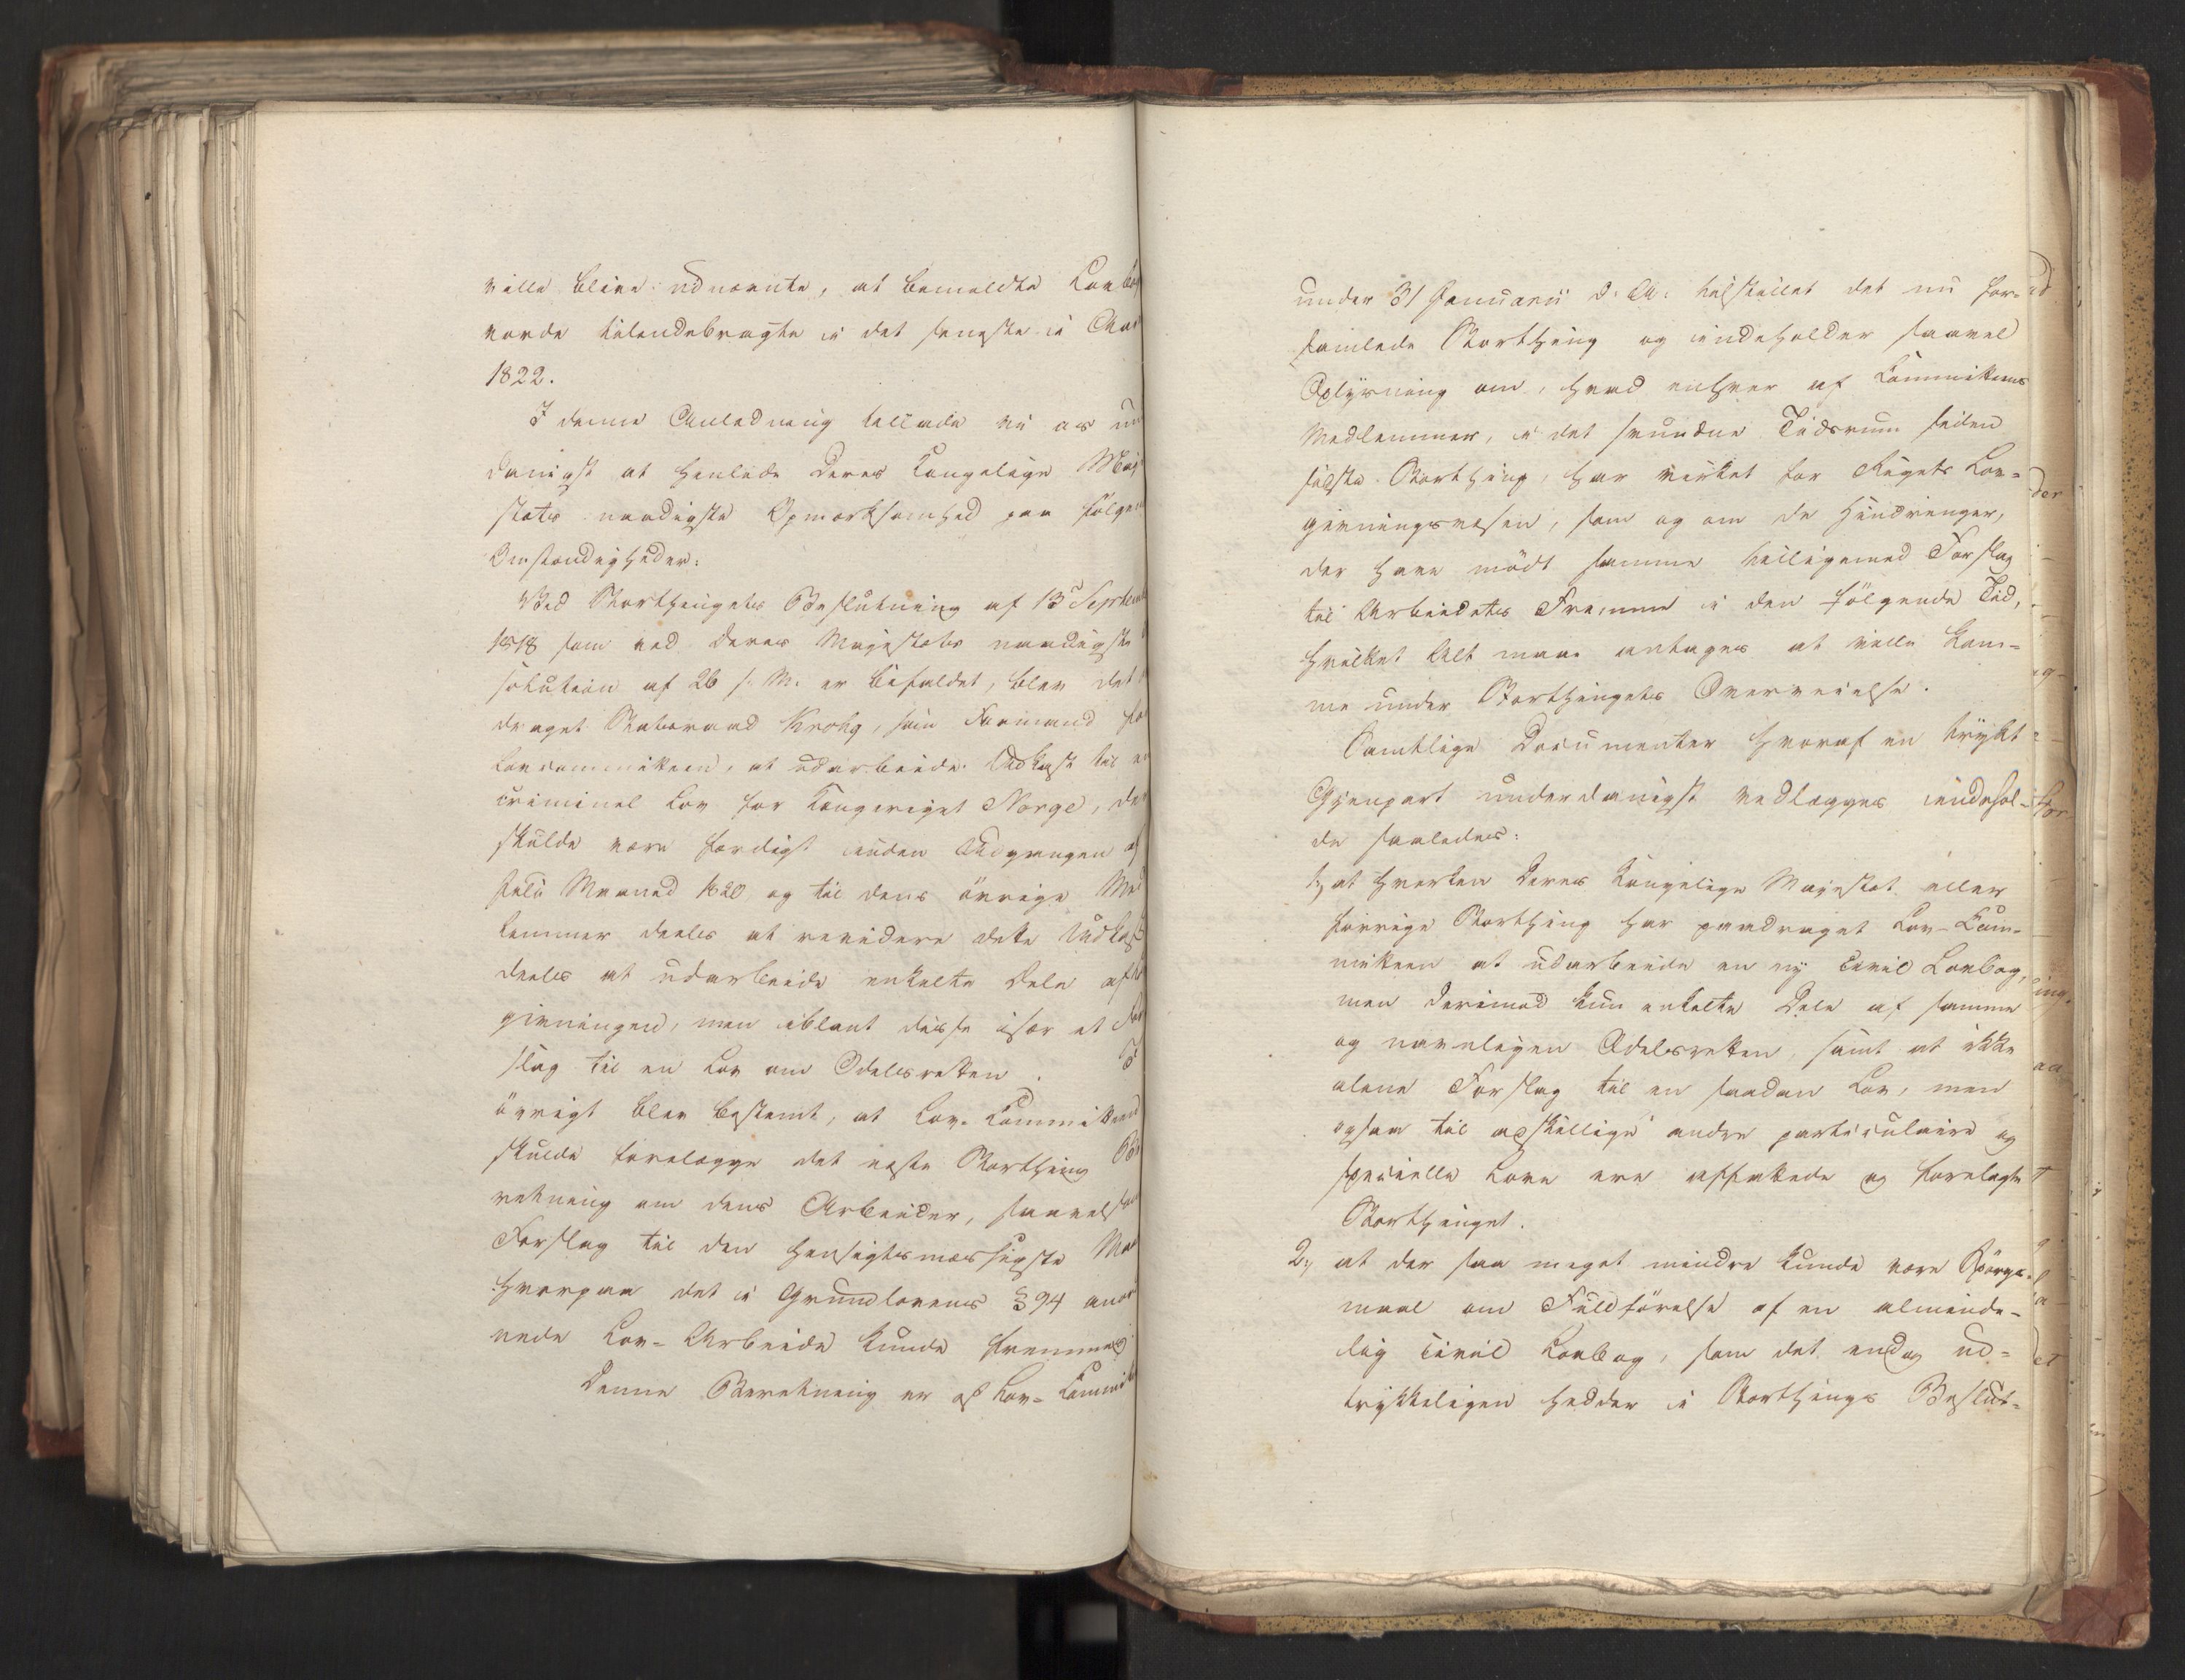 ville blive udnævnte, at bemeldte Lov
vorde tilendebragte i det seneste i Aar
1822.
I denne Anledning tillade vi os un
danigst at henlede Deres Kongelige Maj
stæts naadigste Opmærksomhed paa følgen
Omstændigheder:
Ved Storthingets Beslutning af 13de Septemb
1818 som ved Deres Majestæts naadigste
solution af 26 s. M. er bifaldet, blev det
draget Statsraad Krohg, som Formand for
Lovcommitteen, at udarbeide Udkast til en
criminel Lov for Kongeriget Norge, der
skulde være færdigt inden Udgangen af
Juli Maaned 1820, og til dens øvrige Med
lemmer deels at revidere dette Udkast
deels at udarbeide enkelte Dele af
givningen, men iblant disse især et For
slag til en Lov om Odelsretten. I
øvrigt blev bestemt, at Lov-Committeen
skulde forelægge det næste Storthing Be
retning om dens Arbeider, saavelsom
Forslag til den hensigtsmæssigste Maade
hvorpaa det i Grundlovens § 94 anord
nede Lov-Arbeide kunde fremmes.
Denne Beretning er af Lov-Committ
under 31 Januarii d. A. tilstillet det nu for-
samlede Storthing og indeholder saavel
Oplysning om, hvad enhver af Committeens
Medlemmer, i det svundne Tidsrum siden
sidste Storthing, har virket for Rigets Lov-
givningsvæsen, som og om de Hindringer,
der have mødt samme tilligemed Forslag
til Arbeidets Fremme i den følgende Tid,
hvilket Alt maae antages at ville kom-
me under Storthingets Overveielse.
Samtlige Documenter hvoraf en trykt
Gjenpart underdanigst vedlægges indehol-
de saaledes:
1, at hverken Deres Kongelige Majestæt eller
forrige Storthing har paadraget Lov-Com-
mitteen at udarbeide en ny Civil Lovbog,
men derimod kun enkelte Dele af samme
og navnligen Odelsretten, samt at ikke
alene Forslag til en saadan Lov, men
ogsaa til adskillige andre particulaire og
specielle Love ere affattede og forelagte
Storthinget.
2, at der saa meget mindre kunde være Spörgs-
maal om Fuldførelse af en alminde-
lig Civil Lovbog, som det endog ud-
trykkeligen hedder i Storthings Beslut-